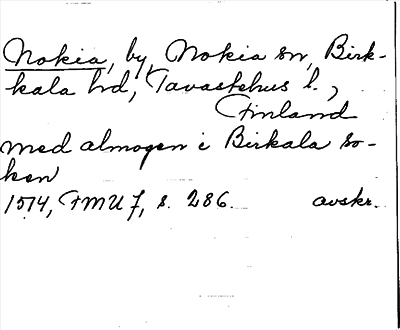 Nokia, by, Nokia sn, Birk-
kala hd, Tavastehus l.,
Finland
med almogen i Birkala so-
ken
1514, FMU 7, s. 286. avskr.